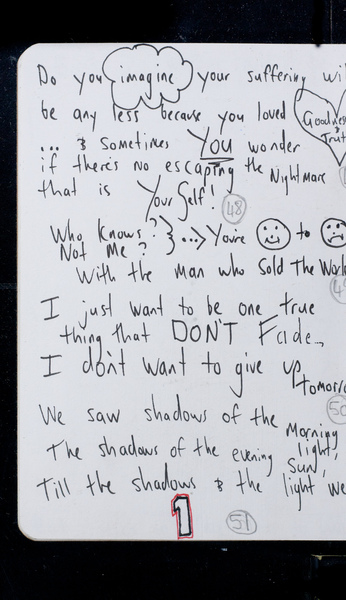 Do you imagine your suffering wil
be any less because you loved Goodness
Truth
... & Sometimes You wonder
if there's no escaping the Nightmare
that is Your Self!
48
Who Knows?
Not Me? } ...> You're to
With the Man who Sold The World
I just want to be one true
thing that DON'T Fade...
I don't want to give up
tomorro
We saw shadows of the Morning
light,
The shadows of the evening Sun,
Till the shadows & the light we
1
51